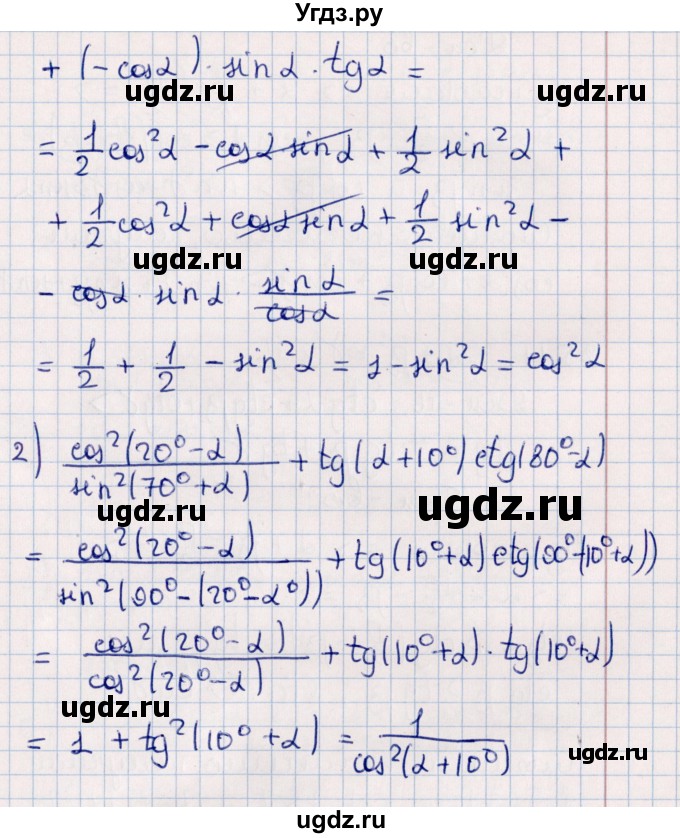 Угдз.ру
+ (-cosα)·sinα·tgα =
ugdz.ru ugdz.ru
= 1/2 cos²α - cosα sinα + 1/2 sin²α +
+ 1/2 cos²α + cosα sinα + 1/2 sin²α -
ugdz.ru ugdz.ru
- cosα · sinα · sinα/cosα =
= 1/2 + 1/2 - sin²α = 1 - sin²α = cos²α
ugdz.ru ugdz.ru
2) cos²(20°-α)/sin²(70°+α) + tg(α+10°)ctg(80°-α)
ugdz.ru ugdz.ru
= cos²(20°-α)/sin²(90°-(20°-α°)) + tg(10°+α)ctg(90°-(10°+α))
ugdz.ru ugdz.ru
= cos²(20°-α)/cos²(20°-α) + tg(10°+α)·tg(10°+α)
ugdz.ru
= 1 + tg²(10°+α) = 1/cos²(α+10°)
ugdz.ru
ugdz.ru